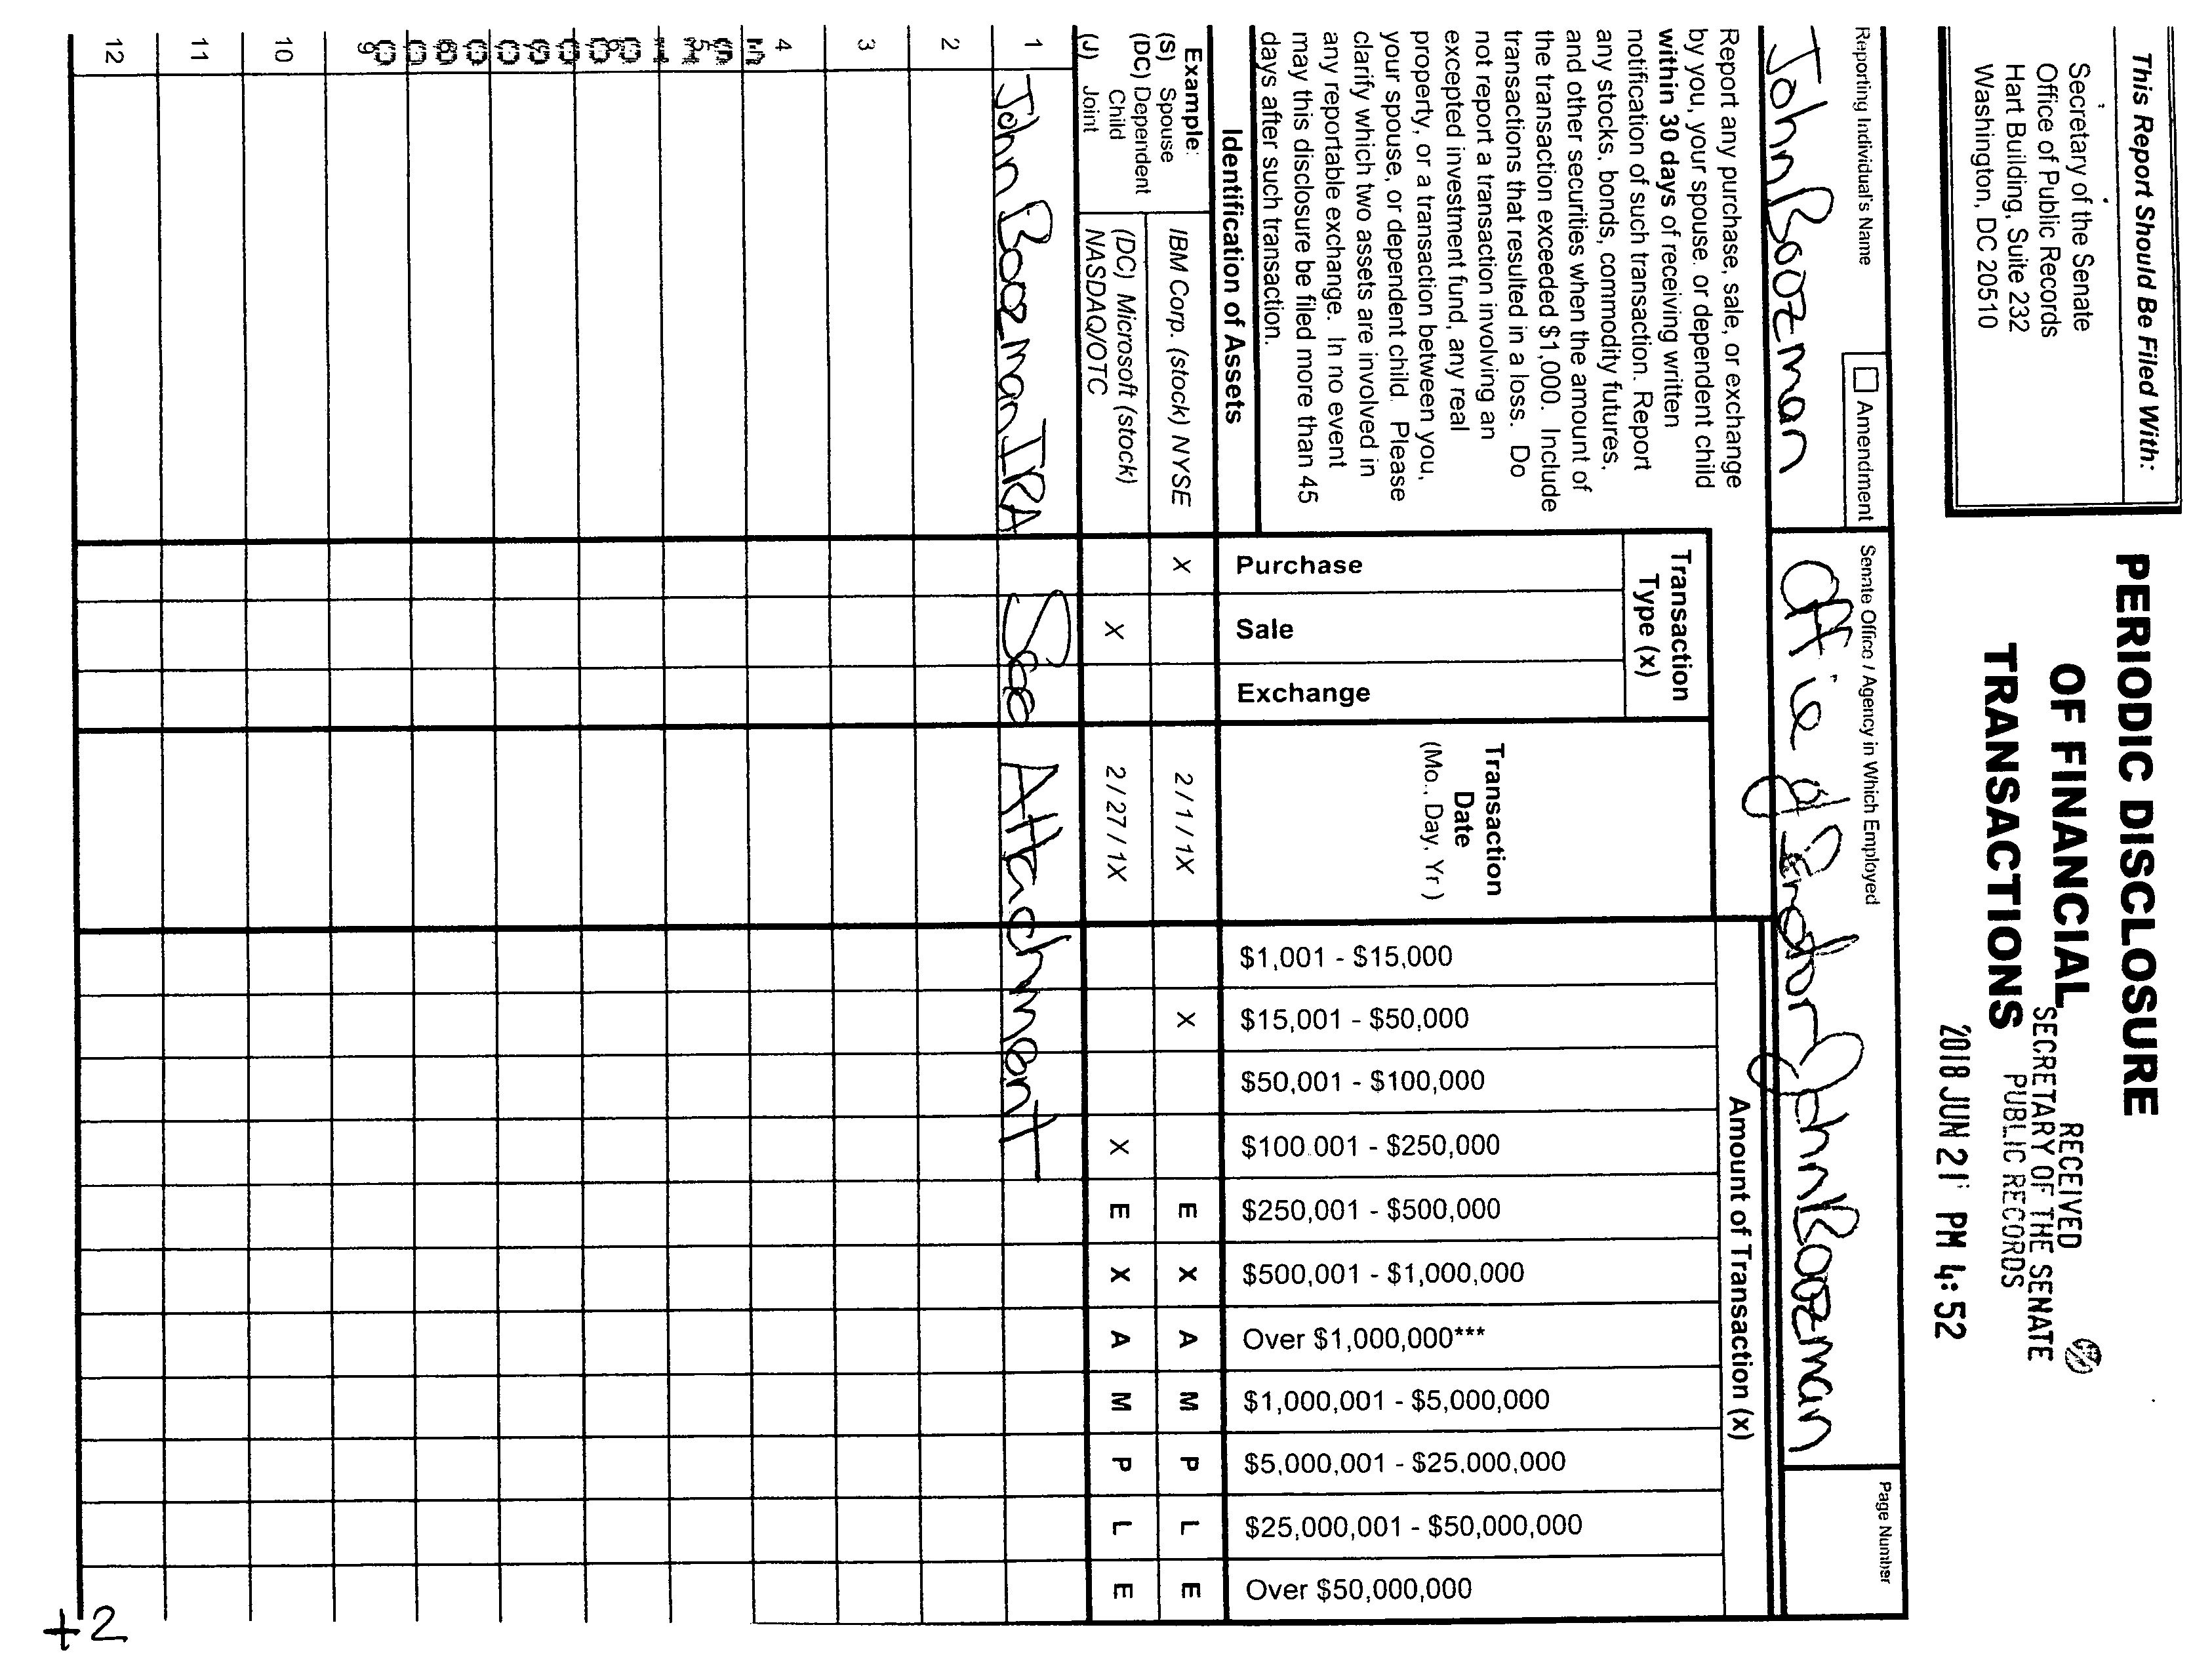 This Report Should Be Filed With:
Secretary of the Senate
Office of Public Records
Hart Building, Suite 232
Washington, DC 20510
PERIODIC DISCLOSURE
OF FINANCIAL
TRANSACTIONS
RECEIVED
SECRETARY OF THE SENATE
PUBLIC RECORDS
2018 JUN 21 PM 4:52
Reporting Individual's Name
John Boozman
Amendment
Senate Office / Agency in Which Employed
Office of Senator John Boozman
Page Number
Report any purchase, sale, or exchange
by you, your spouse, or dependent child
within 30 days of receiving written
notification of such transaction. Report
any stocks, bonds, commodity futures,
and other securities when the amount of
the transaction exceeded $1,000. Include
transactions that resulted in a loss. Do
not report a transaction involving an
excepted investment fund, any real
property, or a transaction between you,
your spouse, or dependent child. Please
clarify which two assets are involved in
any reportable exchange. In no event
may this disclosure be filed more than 45
days after such transaction.
Transaction
Type (x)
Amount of Transaction (x)
Identification of Assets
Purchase
Sale
Exchange
Transaction
Date
(Mo., Day, Yr)
$1,001 - $15,000
$15,001 - $50,000
$50,001 - $100,000
$100.001 - $250,000
$250,001 - $500,000
$500,001 - $1,000,000
Over $1,000,000***
$1,000,001 - $5,000,000
$5,000,001 - $25,000,000
$25,000,001 - $50,000,000
Over $50,000,000
Example:
(S) Spouse
(DC) Dependent
Child
(J) Joint
IBM Corp. (stock) NYSE X 2/1/1X X E X A M P L E
(DC) Microsoft (stock)
NASDAQ/OTC X 2/27/1X X E X A M P L E
1 John Boozman IRA See Attachment
2
3
4
10
11
12
+2